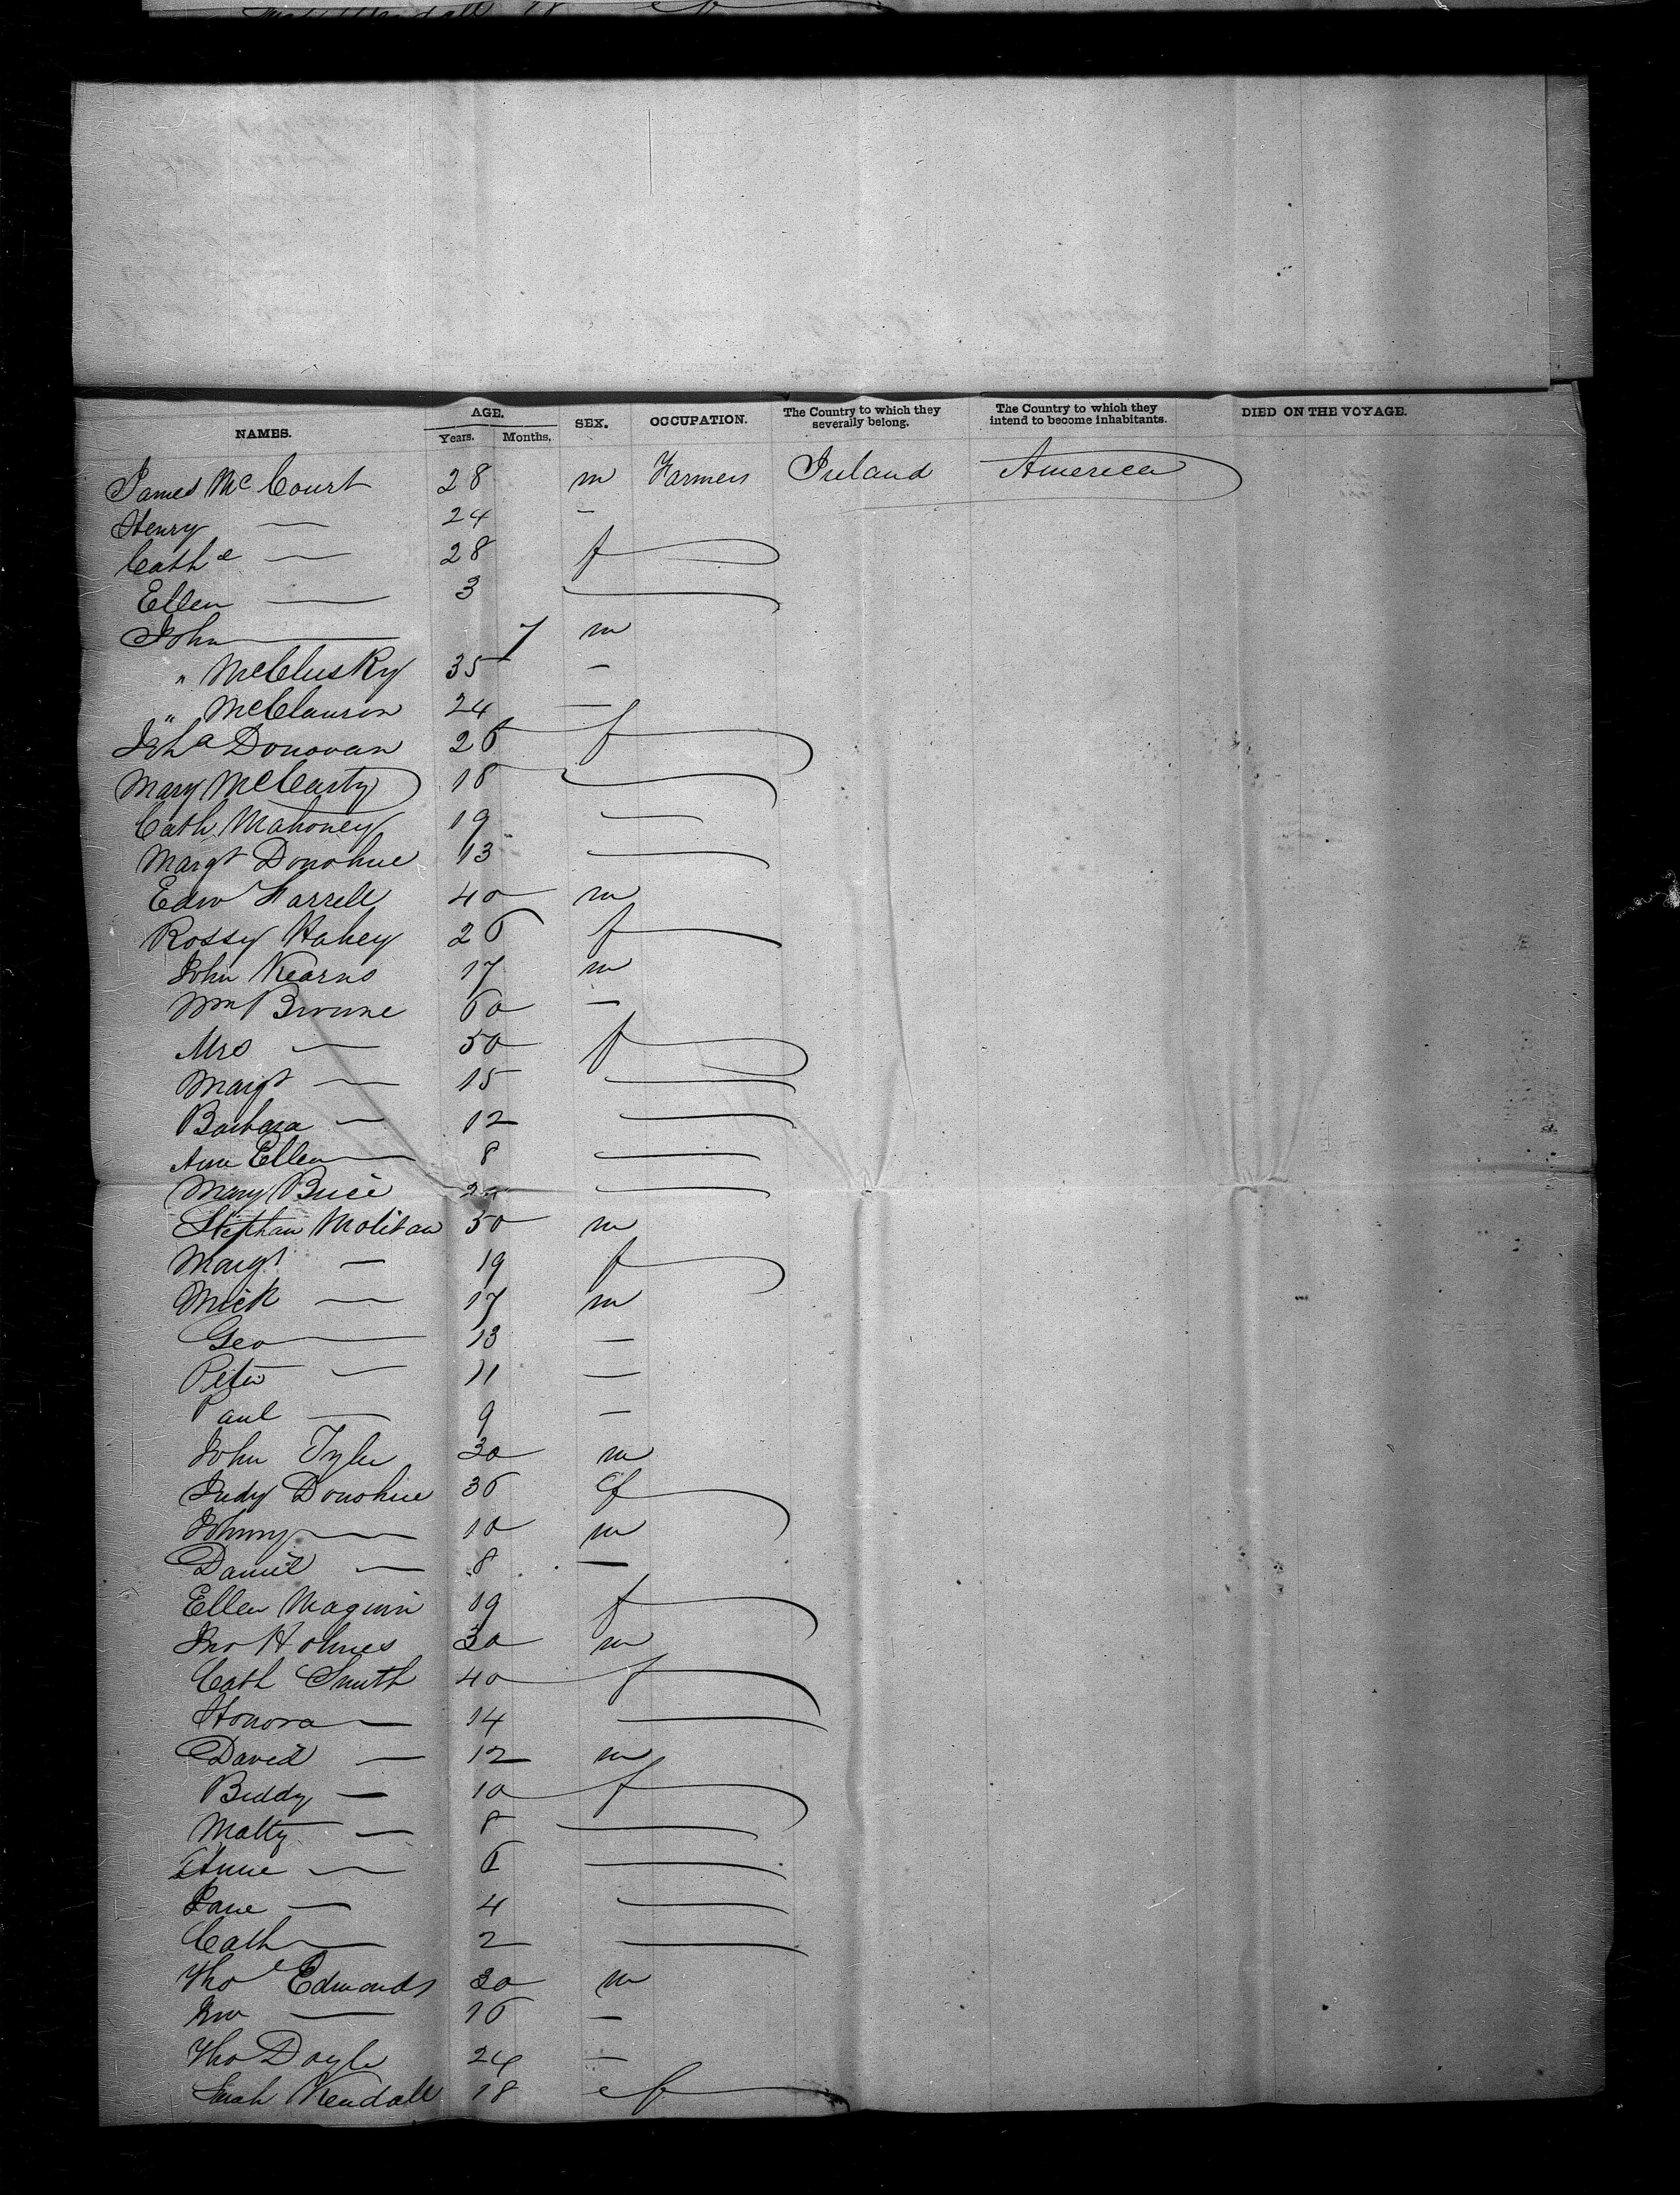 NAMES. AGE. Years. Months. SEX. OCCUPATION. The Country to which they severally belong. The Country to which they intend to become inhabitants. DIED ON THE VOYAGE.
James McCourt 28 m Farmers Ireland America
Henry — 24 –
Cathe — 28 f
Ellen — 3 —
John — 7 m
" McClusky 35 –
" 24 —
Donovan 26 f
Mary McCarty 18 —
Cath Mahoney 19 —
Margt Donohue 13 —
Edw Farrell 40 m
Rossy Hahey 26 f
John Kearns 17 m
Wm Browne 60 —
Mrs — 50 f
Margt — 15 —
Barbara — 12 —
Ann Ellen — 8 —
Mary Brice —
Stephan Molitaw 50 m
Margt — 19 f
Mick — 17 m
Geo — 13 —
Peter — 11 —
Paul — 9 —
John Tyler 30 m
Judy Donohue 36 f
Johnny — 10 m
Daniel — 8 —
Ellen Maguin 19 f
Jno Holmes 30 m
Cath Smith 40 f
Honora — 14 —
David — 12 m
Biddy — 10 f
Matty — 8 —
Anne — 6 —
Jane — 4 —
Cath — 2 —
Tho Edmonds 30 m
Jno — 16 —
Tho Doyle 24 —
Sarah Kendall 18 f